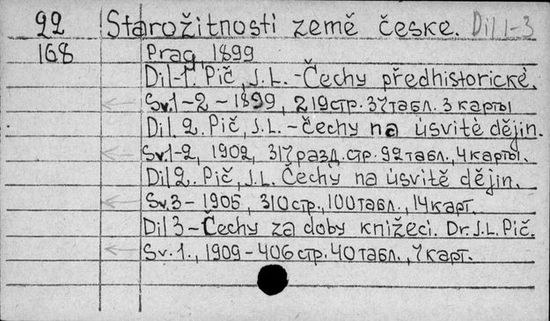 92 Starožitnosti země česke. Díl 1-3
168 Prag 1899
Díl-1. Pič, J.L.-Čechy předhistorické.
Sv.1-2-1899, 219стр. 37табл. 3 карты
Díl 2. Pič, J.L.-Čechy na úsvitě dějin.
Sv.1-2, 1902, 317разд.стр. 92табл., 4карты.
Díl 2. Pič, J.L. Čechy na úsvitě dějin.
Sv.3-1905, 310стр., 100табл., 14карт.
Díl 3-Čechy za doby knižeci. Dr. J.L. Pič.
Sv.1., 1909-406стр. 40табл., 7карт.